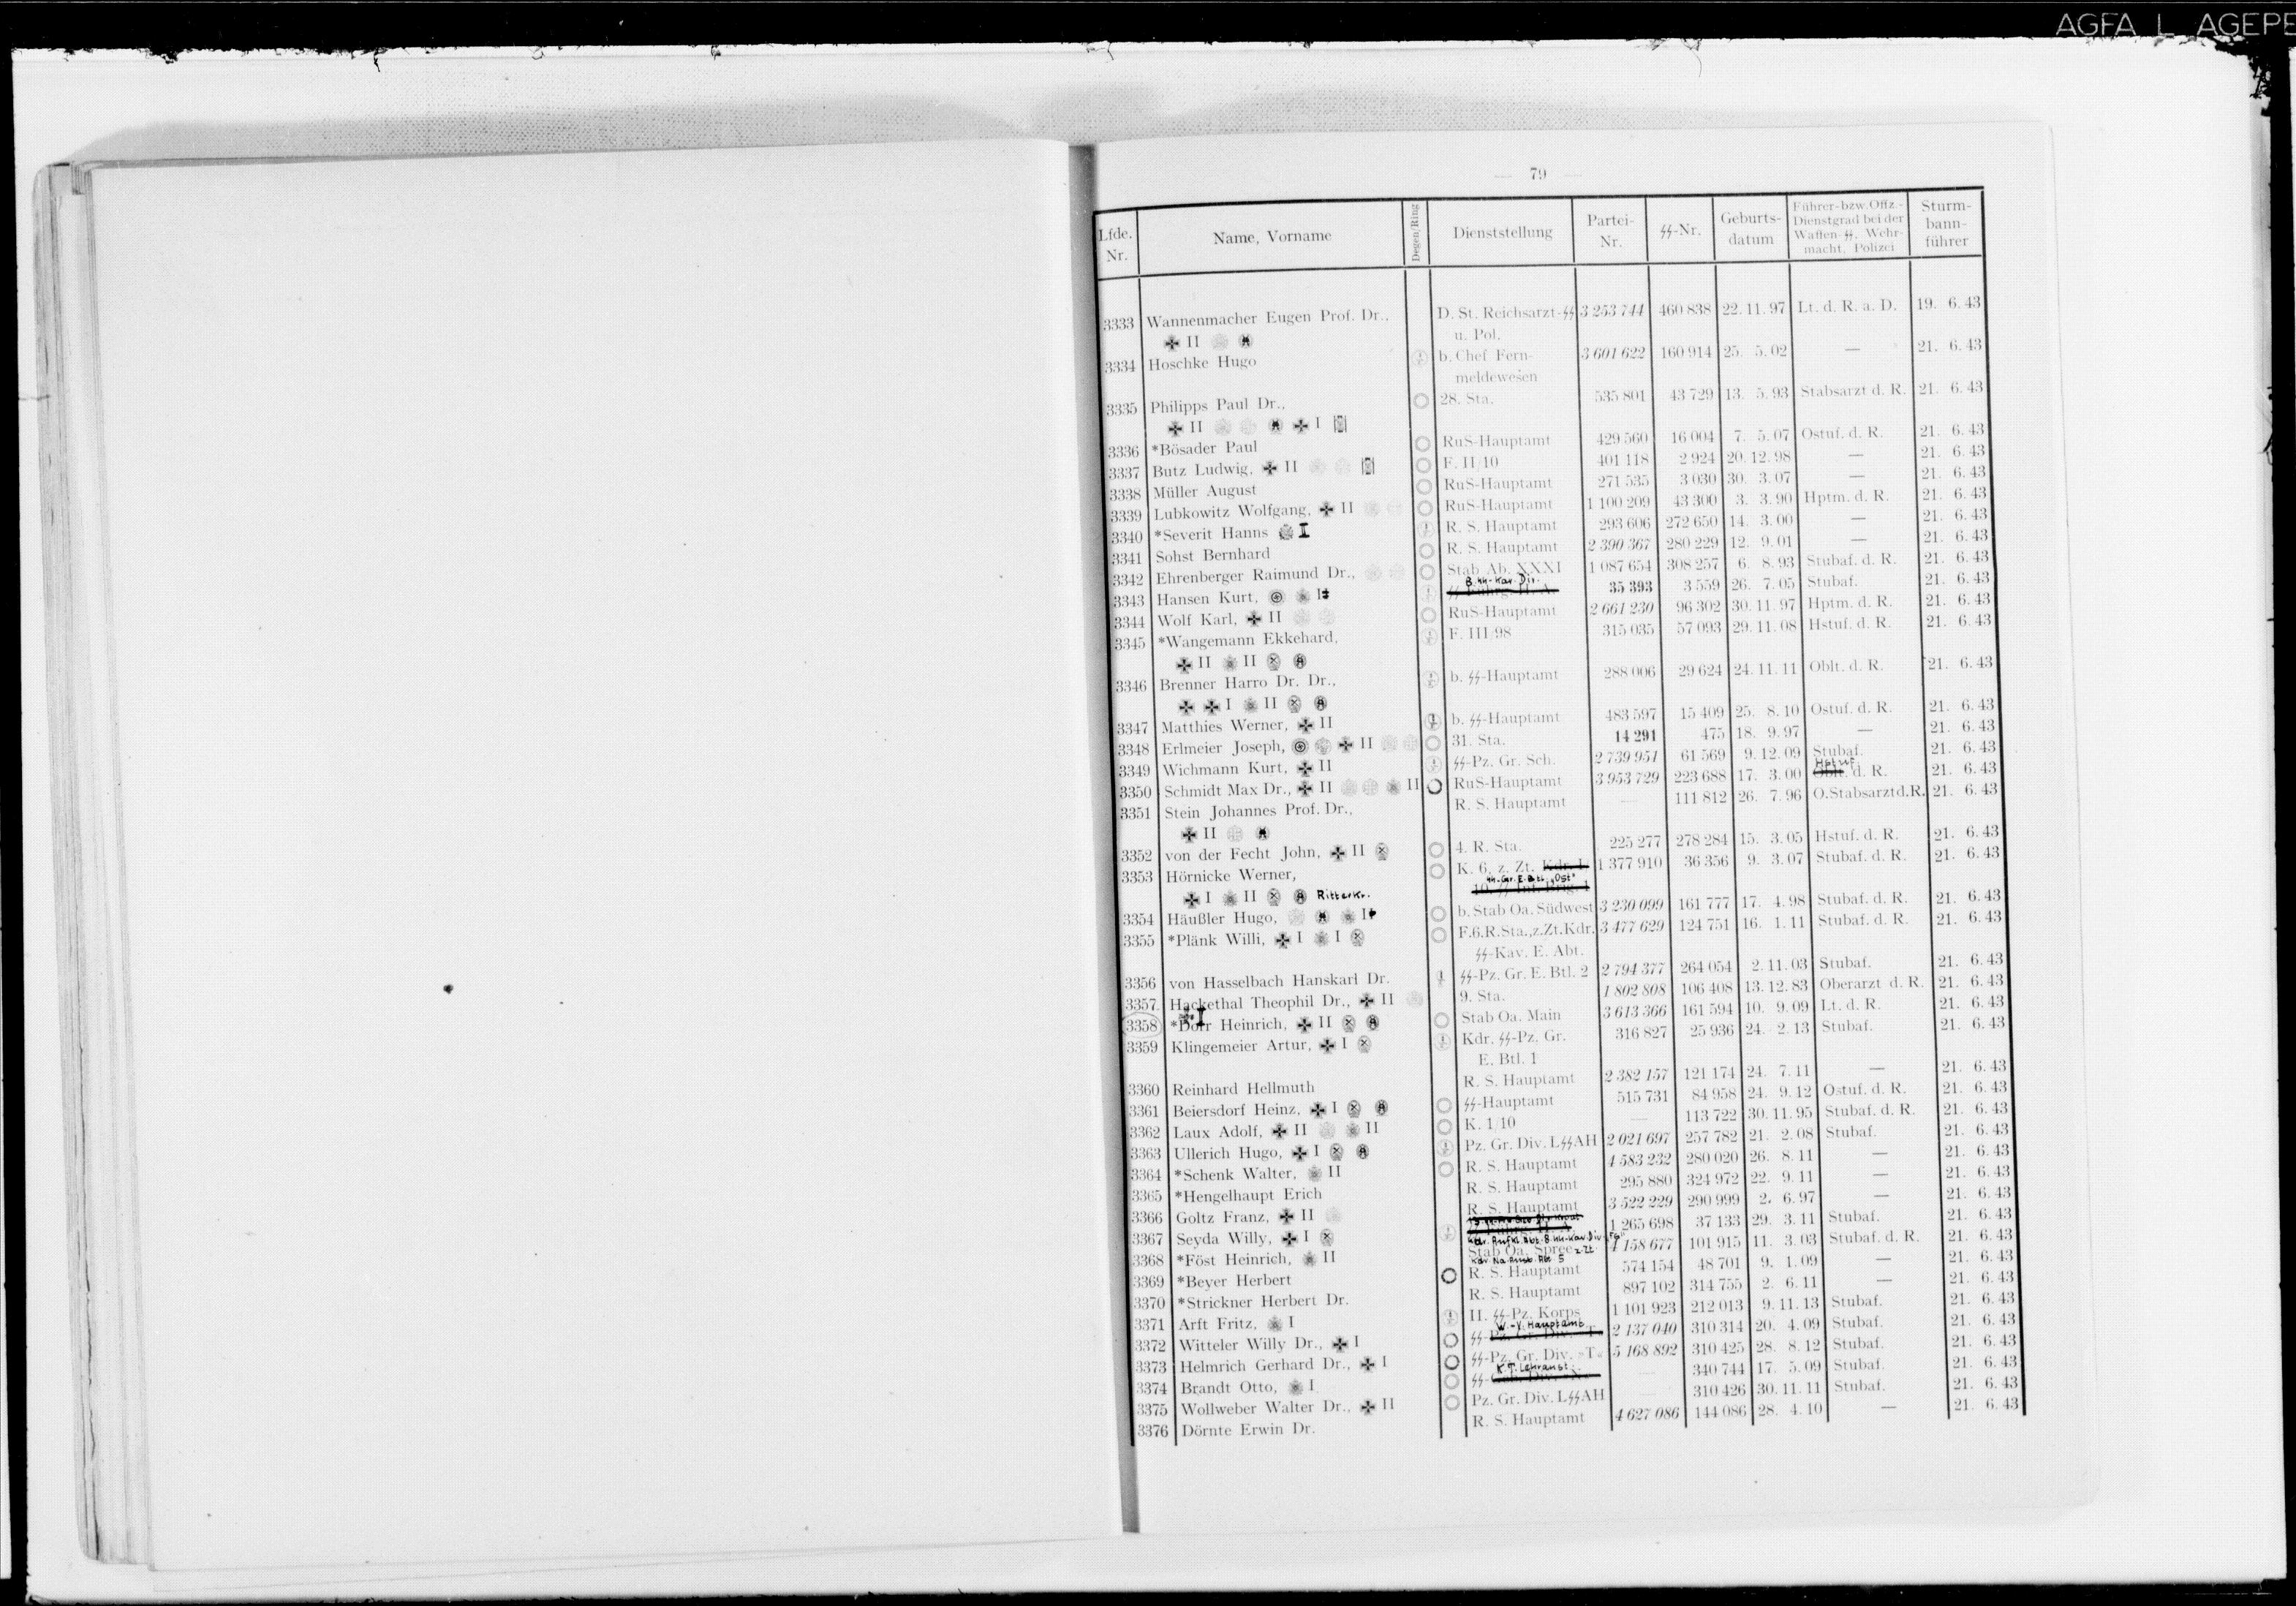 AGFA L AGEPE
— 79 —
Lfde. Nr. | Name, Vorname | Degen/Ring | Dienststellung | Partei-Nr. | ᛋᛋ-Nr. | Geburts-datum | Führer-bzw.Offz.-Dienstgrad bei der Waffen-ᛋᛋ, Wehr-macht, Polizei | Sturm-bann-führer
3333 Wannenmacher Eugen Prof. Dr., D. St. Reichsarzt-ᛋᛋ 3 253 744 460 838 22. 11. 97 Lt. d. R. a. D. 19. 6. 43
✠ II u. Pol.
3334 Hoschke Hugo b. Chef Fern- 3 601 622 160 914 25. 5. 02 — 21. 6. 43
meldewesen
3335 Philipps Paul Dr., 28. Sta. 535 801 43 729 13. 5. 93 Stabsarzt d. R. 21. 6. 43
✠ II ✠ I
3336 *Bösader Paul RuS-Hauptamt 429 560 16 004 7. 5. 07 Ostuf. d. R. 21. 6. 43
3337 Butz Ludwig, ✠ II F. II/10 401 118 2 924 20. 12. 98 — 21. 6. 43
3338 Müller August RuS-Hauptamt 271 535 3 030 30. 3. 07 — 21. 6. 43
3339 Lubkowitz Wolfgang, ✠ II RuS-Hauptamt 1 100 209 43 300 3. 3. 90 Hptm. d. R. 21. 6. 43
3340 *Severit Hanns I R. S. Hauptamt 293 606 272 650 14. 3. 00 — 21. 6. 43
3341 Sohst Bernhard R. S. Hauptamt 2 390 367 280 229 12. 9. 01 — 21. 6. 43
3342 Ehrenberger Raimund Dr., Stab Ab. XXXI 1 087 654 308 257 6. 8. 93 Stubaf. d. R. 21. 6. 43
3343 Hansen Kurt, I 8. ᛋᛋ-Kav. Div. 35 393 3 559 26. 7. 05 Stubaf. 21. 6. 43
3344 Wolf Karl, ✠ II RuS-Hauptamt 2 661 230 96 302 30. 11. 97 Hptm. d. R. 21. 6. 43
3345 *Wangemann Ekkehard, F. III/98 315 035 57 093 29. 11. 08 Hstuf. d. R. 21. 6. 43
✠ II II
3346 Brenner Harro Dr. Dr., b. ᛋᛋ-Hauptamt 288 006 29 624 24. 11. 11 Oblt. d. R. 21. 6. 43
✠ ✠ I II
3347 Matthies Werner, ✠ II b. ᛋᛋ-Hauptamt 483 597 15 409 25. 8. 10 Ostuf. d. R. 21. 6. 43
3348 Erlmeier Joseph, ✠ II 31. Sta. 14 291 475 18. 9. 97 — 21. 6. 43
3349 Wichmann Kurt, ✠ II ᛋᛋ-Pz. Gr. Sch. 2 739 951 61 569 9. 12. 09 Stubaf. 21. 6. 43
3350 Schmidt Max Dr., ✠ II II RuS-Hauptamt 3 953 729 223 688 17. 3. 00 Hstuf. Oblt. d. R. 21. 6. 43
3351 Stein Johannes Prof. Dr., R. S. Hauptamt — 111 812 26. 7. 96 O.Stabsarzt d. R. 21. 6. 43
✠ II
3352 von der Fecht John, ✠ II 4. R. Sta. 225 277 278 284 15. 3. 05 Hstuf. d. R. 21. 6. 43
3353 Hörnicke Werner, K. 6, z. Zt. Kdr. I 1 377 910 36 356 9. 3. 07 Stubaf. d. R. 21. 6. 43
✠ I II Ritterkr. ᛋᛋ-Gr. E. Btl. „Ost"
3354 Häußler Hugo, I b. Stab Oa. Südwest 3 230 099 161 777 17. 4. 98 Stubaf. d. R. 21. 6. 43
3355 *Plänk Willi, ✠ I I F.6.R.Sta.,z.Zt.Kdr. 3 477 629 124 751 16. 1. 11 Stubaf. d. R. 21. 6. 43
ᛋᛋ-Kav. E. Abt.
3356 von Hasselbach Hanskarl Dr. ᛋᛋ-Pz. Gr. E. Btl. 2 2 794 377 264 054 2. 11. 03 Stubaf. 21. 6. 43
3357 Hackethal Theophil Dr., ✠ II 9. Sta. 1 802 808 106 408 13. 12. 83 Oberarzt d. R. 21. 6. 43
3358 *Dorr Heinrich, ✠ II I Stab Oa. Main 3 613 366 161 594 10. 9. 09 Lt. d. R. 21. 6. 43
3359 Klingemeier Artur, ✠ I Kdr. ᛋᛋ-Pz. Gr. 316 827 25 936 24. 2. 13 Stubaf. 21. 6. 43
E. Btl. 1
3360 Reinhard Hellmuth R. S. Hauptamt 2 382 157 121 174 24. 7. 11 — 21. 6. 43
3361 Beiersdorf Heinz, ✠ I ᛋᛋ-Hauptamt 515 731 84 958 24. 9. 12 Ostuf. d. R. 21. 6. 43
3362 Laux Adolf, ✠ II II K. 1/10 — 113 722 30. 11. 95 Stubaf. d. R. 21. 6. 43
3363 Ullerich Hugo, ✠ I Pz. Gr. Div. LᛋᛋAH 2 021 697 257 782 21. 2. 08 Stubaf. 21. 6. 43
3364 *Schenk Walter, II R. S. Hauptamt 4 583 232 280 020 26. 8. 11 — 21. 6. 43
3365 *Hengelhaupt Erich R. S. Hauptamt 295 880 324 972 22. 9. 11 — 21. 6. 43
3366 Goltz Franz, ✠ II R. S. Hauptamt 3 522 229 290 999 2. 6. 97 — 21. 6. 43
3367 Seyda Willy, ✠ I Kdr. Aufkl. Abt. 8. ᛋᛋ-Kav. Div. 1 265 698 37 133 29. 3. 11 Stubaf. 21. 6. 43
3368 *Föst Heinrich, II Stab Oa. Spree z. Zt. 4 158 677 101 915 11. 3. 03 Stubaf. d. R. 21. 6. 43
3369 *Beyer Herbert R. S. Hauptamt 574 154 48 701 9. 1. 09 — 21. 6. 43
3370 *Strickner Herbert Dr. R. S. Hauptamt 897 102 314 755 2. 6. 11 — 21. 6. 43
3371 Arft Fritz, I II. ᛋᛋ-Pz. Korps 1 101 923 212 013 9. 11. 13 Stubaf. 21. 6. 43
3372 Witteler Willy Dr., ✠ I ᛋᛋ-W.-V. Hauptamt 2 137 040 310 314 20. 4. 09 Stubaf. 21. 6. 43
3373 Helmrich Gerhard Dr., ✠ I ᛋᛋ-Pz. Gr. Div. »T« 5 168 892 310 425 28. 8. 12 Stubaf. 21. 6. 43
3374 Brandt Otto, I ᛋᛋ-K.T. Lehranst. — 340 744 17. 5. 09 Stubaf. 21. 6. 43
3375 Wollweber Walter Dr., ✠ II Pz. Gr. Div. LᛋᛋAH — 310 426 30. 11. 11 Stubaf. 21. 6. 43
3376 Dörnte Erwin Dr. R. S. Hauptamt 4 627 086 144 086 28. 4. 10 — 21. 6. 43